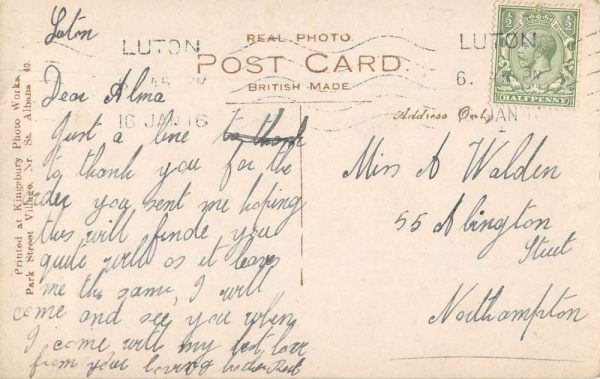 Luton
LUTON
6.45 PM
16 JAN 16
REAL PHOTO.
POST CARD.
BRITISH MADE.
LUTON
6.45 PM
JAN 16
HALFPENNY
Printed at Kingsbury Photo Works,
Park Street Village, Nr. St. Albans 40.
Dear Alma
Just a line to thank
to thank you for the
order you sent me hoping
this will finde you
quite well as it leaves
me the same, I will
come and see you when
I come, with my best love
from your loving brother Bert
Address Only
Miss A Walden
55 Abington
Street
Northampton